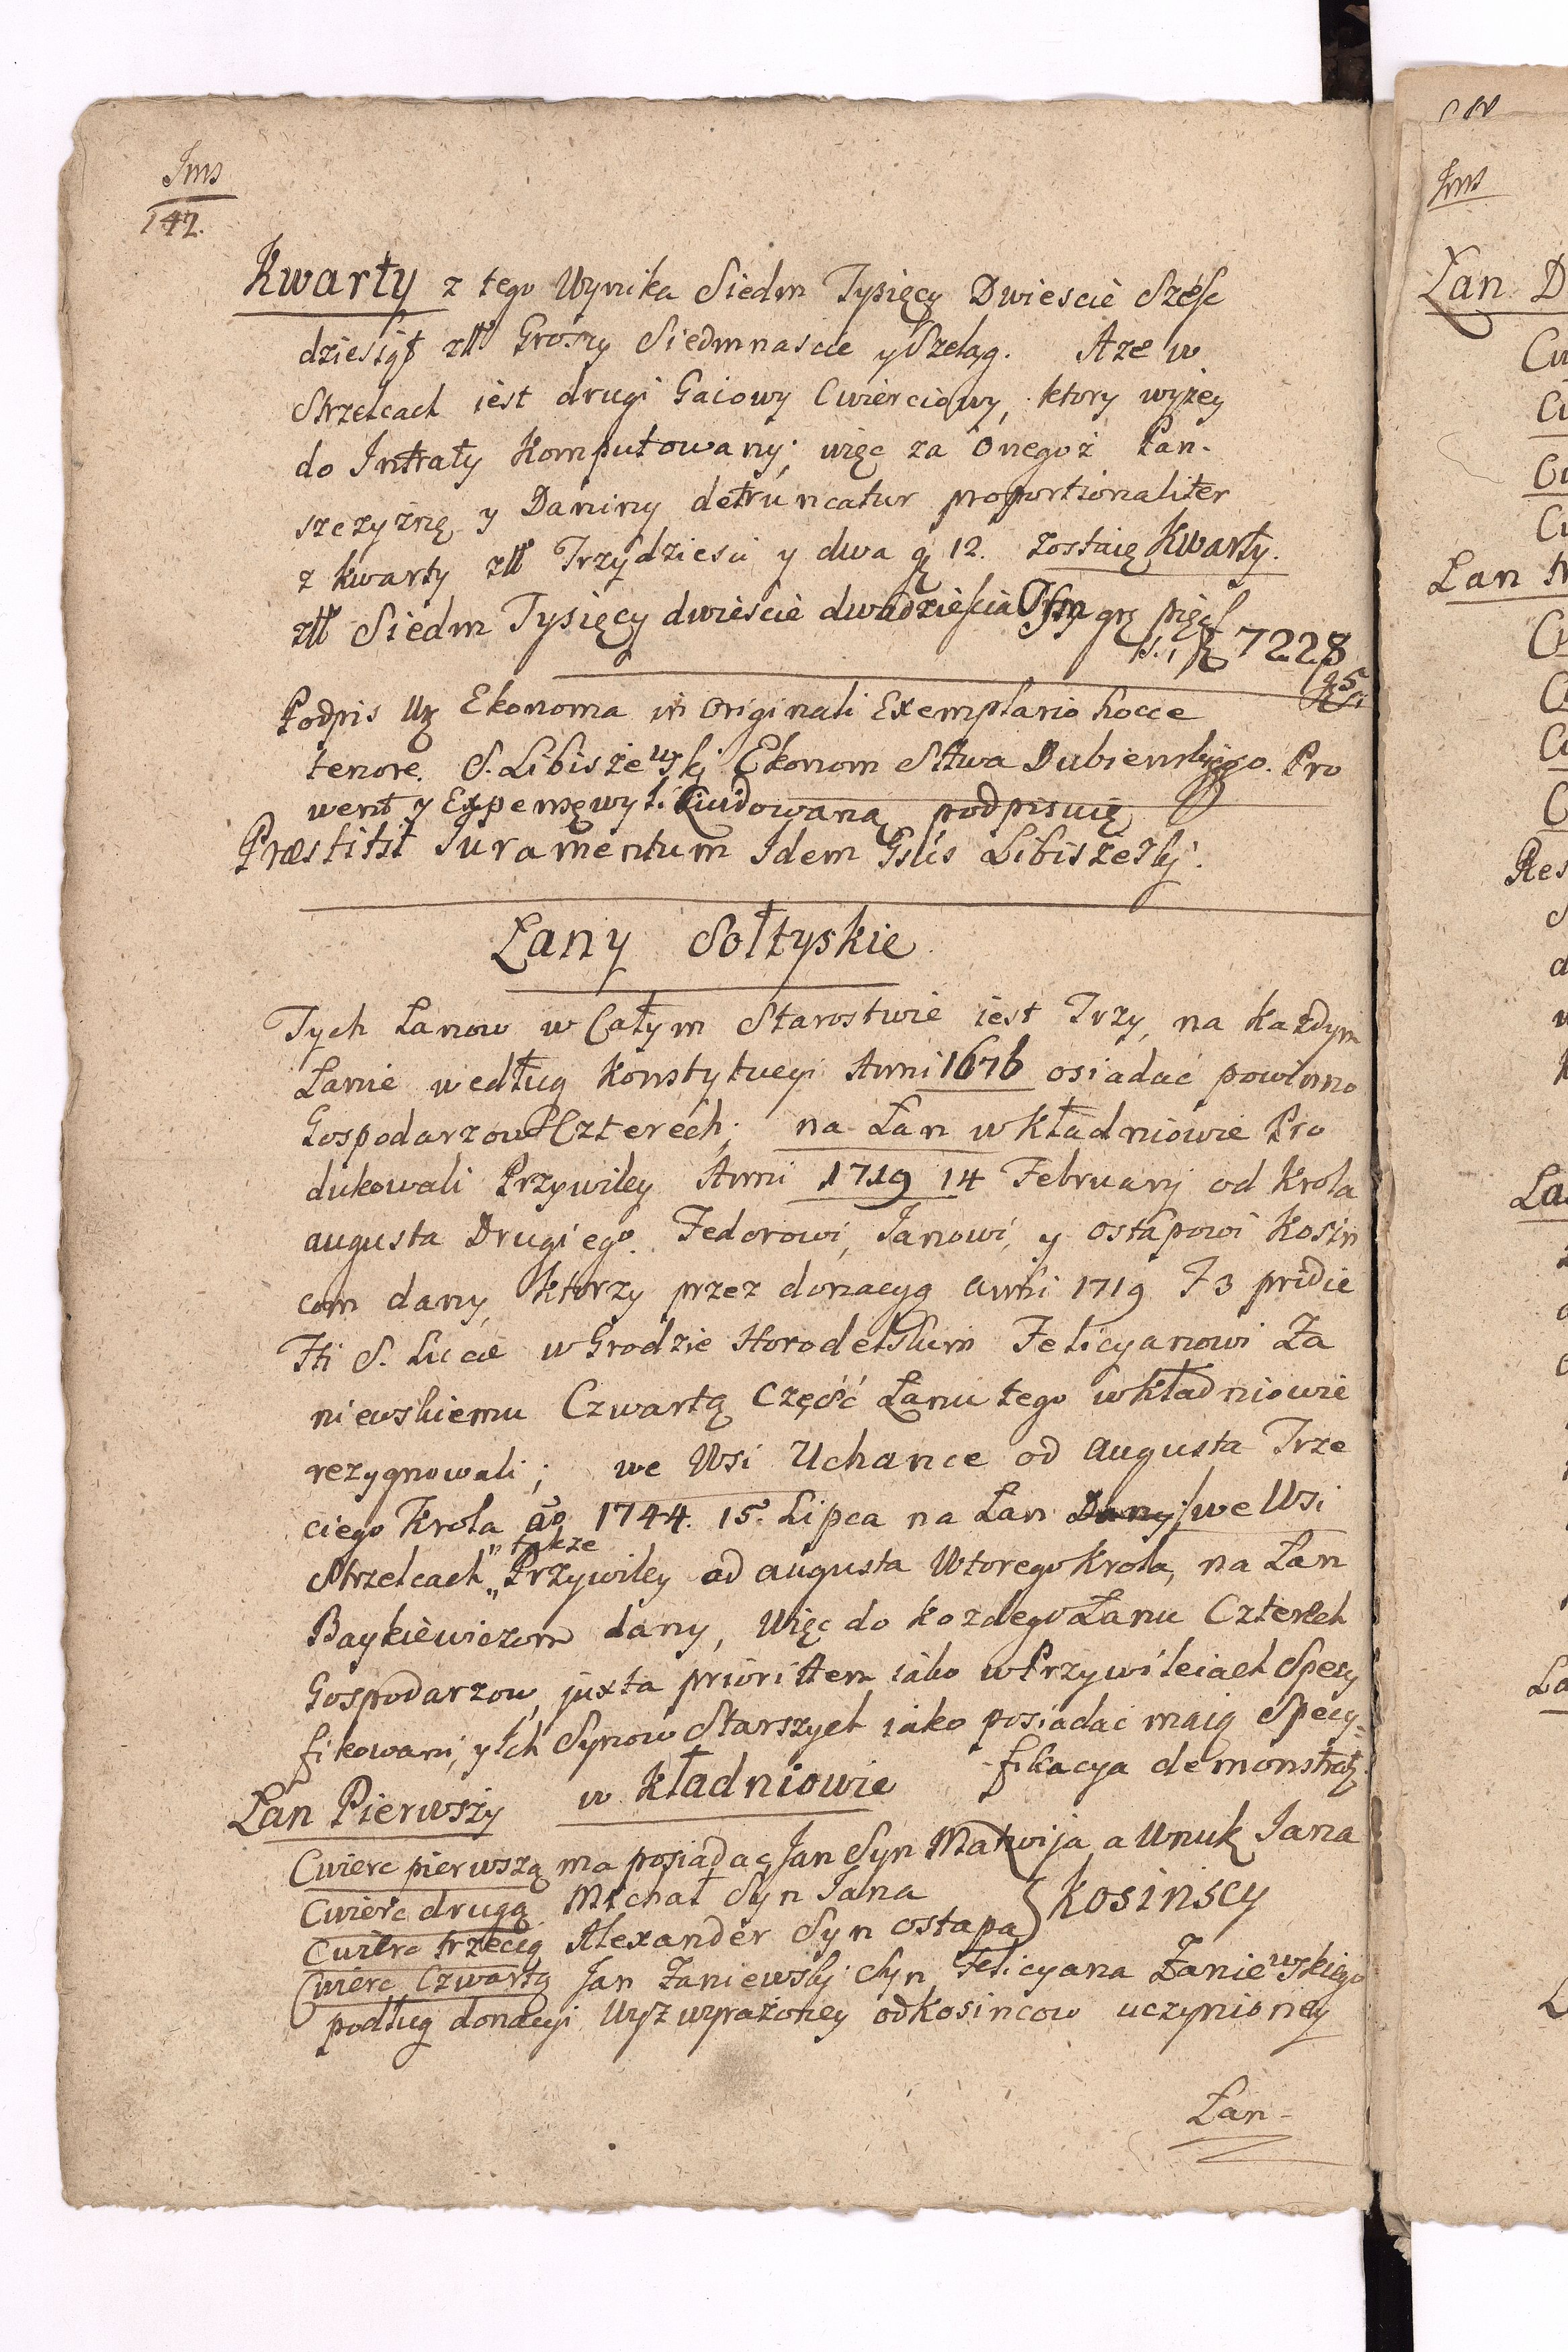 Jms
147.
Kwarty z tego Wynika Siedm Tysięcy Dwiescie Szesc
dziesiąt złł Groszy Siedmnascie y Szeląg. Aze w
Strzelcach iest drugi Gaiowy Cwierciowy, ktory wyżey
do Intraty Komputowany; więc za Onegoż Pan-
szczyznę y Daniny detruncatur proportionaliter
z kwarty złł Trzydziesci y dwa g 12. zostaię Kwarty.
złł Siedm Tysięcy dwieście dwadzieścia Osm grz pięc
s. 1 f 7228
g 5
Podpis Ur Ekonoma in Originali Exemplario hocce
tenore. S. Libiszewskj Ekonom Sttwa Dubienskiego. Pro
went y Expensę wyż. likwidowaną podpisuię
Præstitit Juramentum Idem Gslis Libiszewskj.
Łany Sołtyskie
Tych Łanow w Całym Starostwie iest Trzy, na Każdym
Łanie według Konstytucyi Anni 1676 osiadać powinno
Gospodarzow Czterech; na Łan w Kładniowie Pro
dukowali Przywiley Anni 1719 14 February od Krola
augusta Drugiego. Fedorowi, Janowi, y Ostapowi Kosin
com dany, Ktorzy przez donacyą anni 1719 F 3 pridie
Fti S. Lucæ w Grodzie Horodelskim Felicyanowi Za
niewskiemu Czwartą Część Łanu tego w Kładniowie
rezygnowali; we Wsi Uchance od augusta Trze
ciego Krola ao 1744. 15. Lipca na Łan Dany; we Wsi
" takze
Strzelcach „ Przywiley od augusta Wtorego Krola, na Łan
Baykiewiczom dany, Więc do kozdego Łanu Czterech
Gospodarzow, juxta prioritatem iako w Przywileiach Specy
fikowani, y ich Synow Starszych iako posiadać maią Specy-
fikacya demonstrat.
Łan Pierwszy w Kładniowie
Cwierc pierwszą ma posiadac Jan Syn Matwija a Wnuk Jana
Cwierc drugą Michał Syn Jana
Kosinscy
Cwierc trzecią Alexander Syn Ostapa
Cwierc Czwartą Jan Zaniewskj Syn Felicyana Zaniewskiego
podług donacyi Wyż wyrażoney od Kosincow uczynioney
Łan-
Jms
Łan D
Cw
Łan
Res